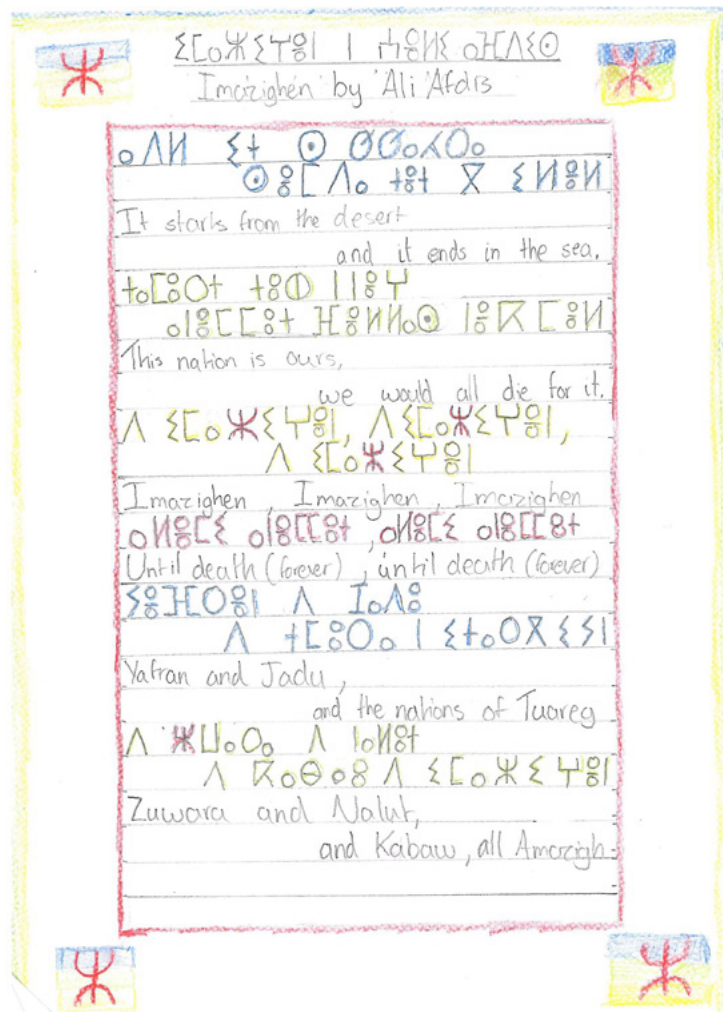 ⵉⵎⴰⵣⵉⵖⴻⵏ ⵏ ⵄⴻⵍⵉ ⴰⴼⴷⵉⵙ
Imazighen by 'Ali 'Afdis
ⴰⴷⵍ ⵉⵜ ⵙ
ⵙⵓⵎⴷⴰ ⵜⵓⵜ ⴳ ⵉⵍⵓⵍ
It starts from the desert
and it ends in the sea.
ⵜⴰⵎⵓⵔⵜ
ⴰⵏⵓⵎⵎⵓⵜ ⵎⵓⵍ
This nation is ours,
we would all die for it.
ⴷ ⵉⵎⴰⵣⵉⵖⴻⵏ, ⴷ ⵉⵎⴰⵣⵉⵖⴻⵏ,
ⴷ ⵉⵎⴰⵣⵉⵖⴻⵏ
Imazighen, Imazighen, Imazighen
ⴰⵍⵓⵎⵉ ⴰⵏⵓⵎⵎⵓⵜ, ⴰⵍⵓⵎⵉ ⴰⵏⵓⵎⵎⵓⵜ
Until death (forever), until death (forever)
ⵢⵓⴼⵔⴻⵏ ⴷ ⵊⴰⴷⵓ
ⴷ ⵜⵎⵓⵔⴰ ⵏ ⵉⵜⴰⵔⴳⵉⵢⵏ
Yafran and Jadu,
and the nations of Tuareg
ⴷ ⵣⵡⴰⵔⴰ ⴷ ⵏⴰⵍⵓⵜ
ⴷ ⴽⴰⴱⴰⵓ ⴷ ⵉⵎⴰⵣⵉⵖⴻⵏ
Zuwara and Nalut,
and Kabaw, all Amazigh